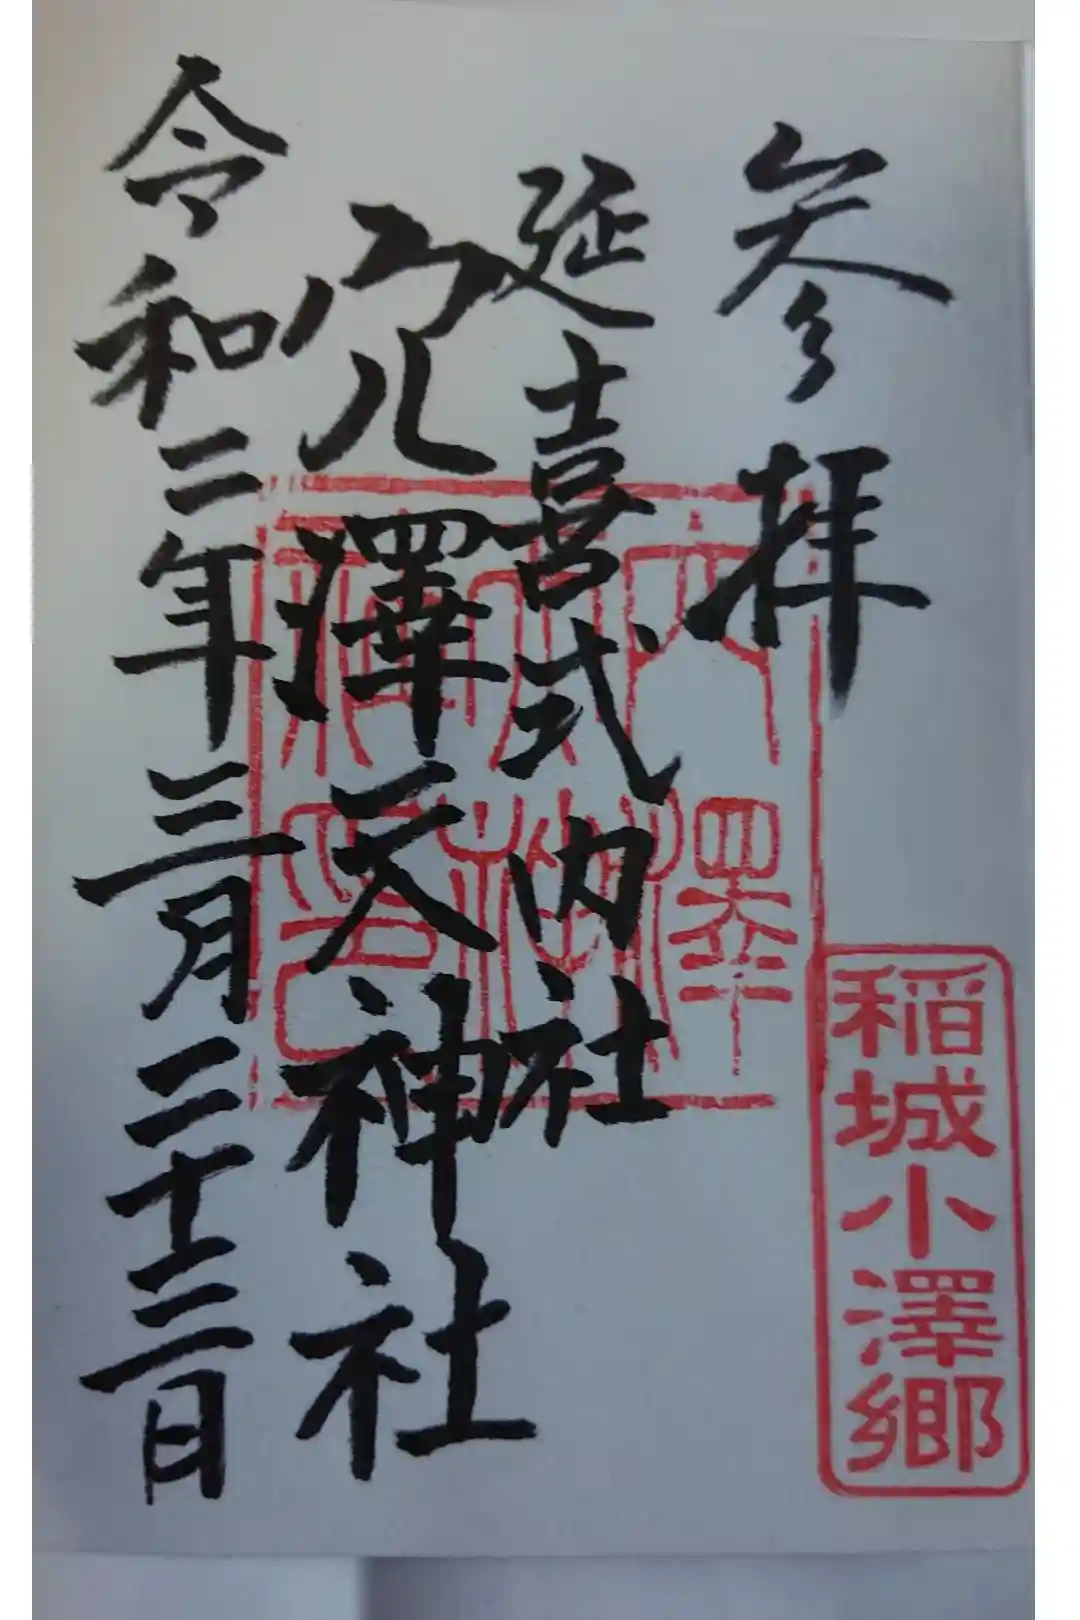 参拝
延喜式内社
穴澤天神社
令和二年三月二十三日
稲城小澤郷